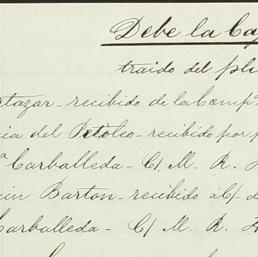 Debe la Ca
traido del pli
tazar - recibido de la Comp.ª
ia del Petoleo - recibido por p
ª Carballeda - C/ M. R. F
uin Barton - recibido á c/- d
Carballeda - C/ M. R. F